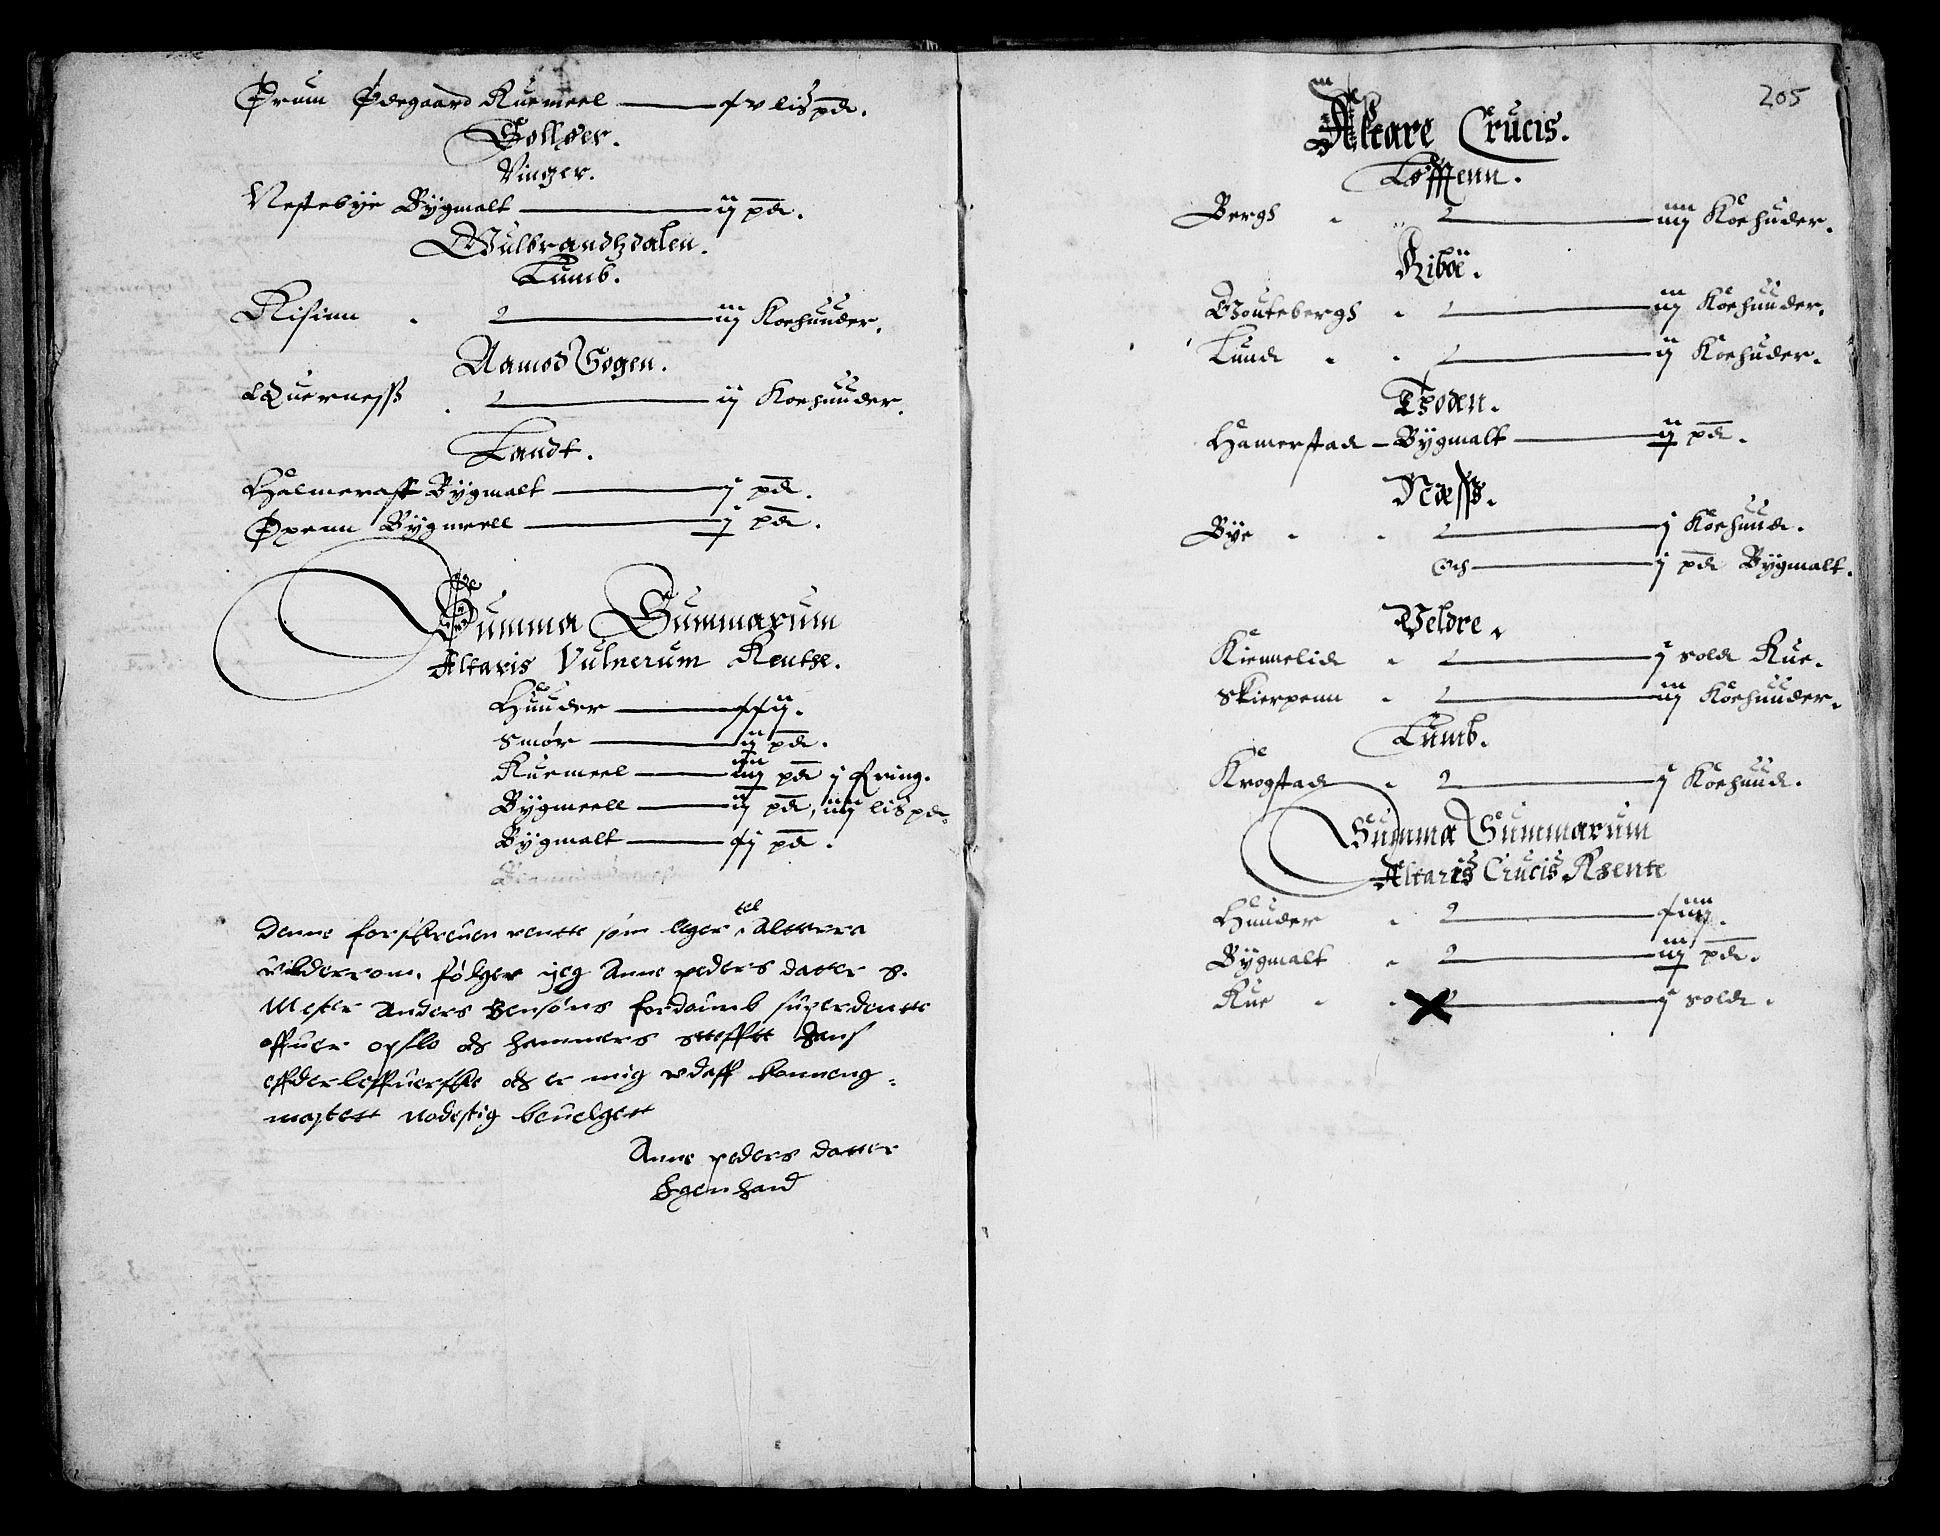 Ørum Ødegaard Ruemeel —— xv lispd.
Solløer.
Vinger.
Nestebÿe Bÿgmalt —— ij pd.
Gulbrandzdalen.
Lumb.
Risinn . 2 —— iij Koehuuder.
Aamod Sogen.
Querness . 2 —— ij Koehuuder.
Landt.
Halmerast Bÿgmalt —— j pd.
Øpenn Bÿgmeell —— j pd.
Summa Summarum
Altaris Vulnerum Renthe.
Huuder —— xxij.
Smør —— ij pd.
Ruemeel —— iiij pd j fring.
Bÿgmeell —— ij pd, iiij lispd.
Bÿgmalt —— xj pd.
Denne forskreuen rentte som liger til Altterre
vilderrom. følger ieg Anne peders datter S.
Mester Anders Bensøns fordumb superdentte
offuer opslo och hammers stefftt Hans
effderleffuerske och er mig vdaff konneng=
maytett nodestig beuelgett
Anne peders datter
Egen hand
205
Altare Crucis.
Løffenn.
Bergh . 2 —— iiij Koehuder.
Riboe.
Goutebergh . 2 —— iij Koehuuder.
Lund . . 2 —— ij Koehuder.
Thoden.
Hamerstad – Bÿgmalt —— ij pd.
Næss.
Bÿe . . 2 —— j Koehuud.
Och —— j pd Bÿgmalt.
Veldre.
Kiennelid . 2 —— j sold Rue.
Skierpenn . 2 —— iij Koehuuder.
Lumb.
Krogstad . 2 —— j Koehuud.
Summa Summarum
Altaris Crucis Rhente
Huuder . 2 —— xiiij.
Bÿgmalt . 2 —— iij pd.
Rue . . 2 —— j sold.